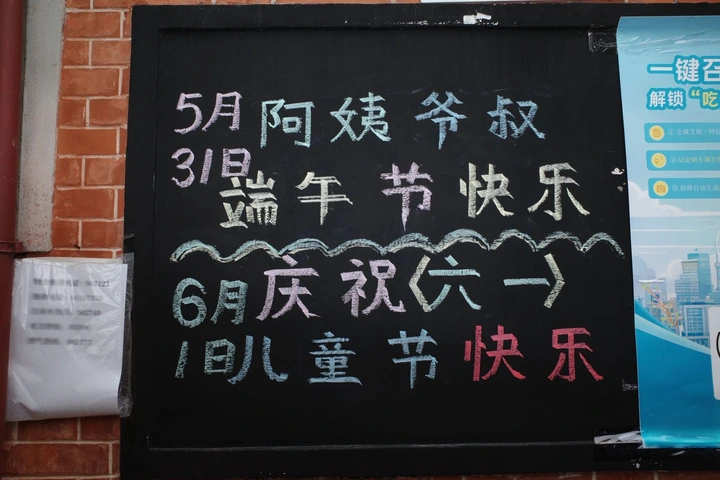 5月
31日
阿姨爷叔
端午节快乐
6月
1日
庆祝《六一》
儿童节快乐
一键召
解锁“吃